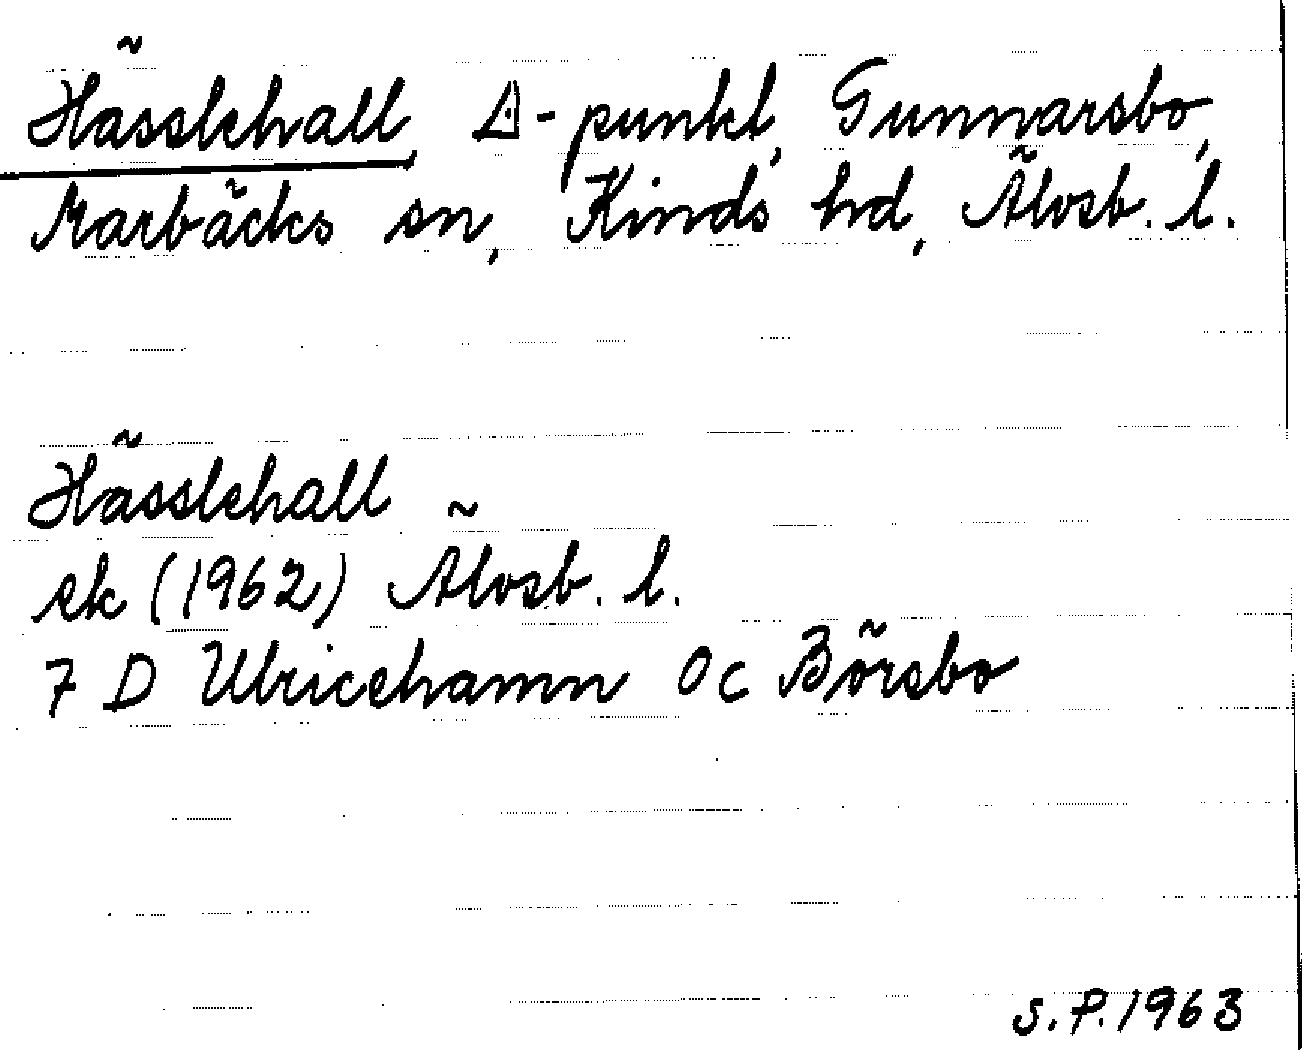 Hässlehall, ∆-punkt, Gunnarsbo,
Marbäcks sn, Kinds hd, Älvsb. l.
Hässlehall
ek (1962) Älvsb. l.
7 D Ulricehamn 0c Börsbo
S.P. 1963